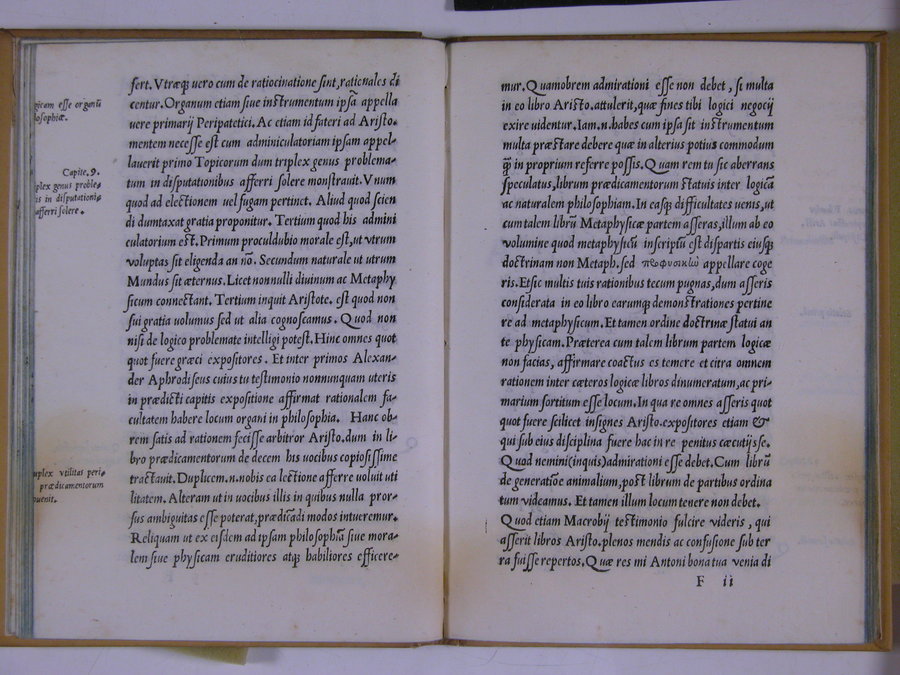 fert. Vtræq; uero cum de ratiocinatione sint, rationales di
centur. Organum etiam siue instrumentum ipsā appella
uere primarij Peripatetici. Ac etiam id fateri ad Aristo.
mentem necesse est cum adminiculatoriam ipsam appel-
lauerit primo Topicorum dum triplex genus problema-
tum in disputationibus afferri solere monstrauit. Vnum
quod ad electionem uel fugam pertinet. Aliud quod scien
di dumtaxat gratia proponitur. Tertium quod his admini
culatorium est. Primum proculdubio morale est, ut vtrum
voluptas sit eligenda an nō. Secundum naturale ut utrum
Mundus sit æternus. Licet nonnulli diuinum ac Metaphy
sicum connectant. Tertium inquit Aristote. est quod non
sui gratia uolumus sed ut alia cognoscamus. Quod non
nisi de logico problemate intelligi potest. Hinc omnes quot
quot fuere græci expositores. Et inter primos Alexan-
der Aphrodiseus cuius tu testimonio nonnunquam uteris
in prædicti capitis expositione affirmat rationalem fa-
cultatem habere locum organi in philosophia. Hanc ob-
rem satis ad rationem fecisse arbitror Aristo. dum in li-
bro prædicamentorum de decem his uocibus copiosissime
tractauit. Duplicem.n. nobis ea lectione afferre uoluit uti
litatem. Alteram ut in uocibus illis in quibus nulla pror-
sus ambiguitas esse poterat, prædicādi modos intueremur.
Reliquam ut ex eisdem ad ipsam philosophiā siue mora-
lem siue physicam eruditiores atq; habiliores efficere-
gicam esse organū
losophiæ.
Capite. 9.
plex genus proble-
is in disputationi-
afferri solere.
uplex vtilitas peri-
prædicamentorum
ouenit.
mur. Quamobrem admirationi esse non debet, si multa
in eo libro Aristo. attulerit, quæ fines tibi logici negocij
exire uidentur. Iam.n. habes cum ipsa sit instrumentum
multa præstare debere quæ in alterius potius commodum
q̄ in proprium referre possis. Quam rem tu sic aberrans
speculatus, librum prædicamentorum statuis inter logicā
ac naturalem philosophiam. In easq; difficultates uenis, ut
cum talem librū Metaphysicæ partem asseras, illum ab eo
volumine quod metaphysicū inscriptū est dispartis eiusq;
doctrinam non Metaph. sed προφυσικὼ appellare coge
ris. Et sic multis tuis rationibus tecum pugnas, dum asseris
considerata in eo libro earumq; demonstrationes pertine
re ad metaphysicum. Et tamen ordine doctrinæ statui an
te physicam. Præterea cum talem librum partem logicæ
non facias, affirmare coactus es temere et citra omnem
rationem inter cæteros logicæ libros dinumeratum, ac pri-
marium sortitum esse locum. In qua re omnes asseris quot
quot fuere scilicet insignes Aristo. expositores etiam &
qui sub eius disciplina fuere hac in re penitus cæcutijsse.
Quod nemini (inquis) admirationi esse debet. Cum librū
de generatiōe animalium, post librum de partibus ordina
tum videamus. Et tamen illum locum tenere non debet.
Quod etiam Macrobij testimonio fulcire videris, qui
asserit libros Aristo. plenos mendis ac confusione sub ter
ra fuisse repertos. Quæ res mi Antoni bona tua venia di
F ii